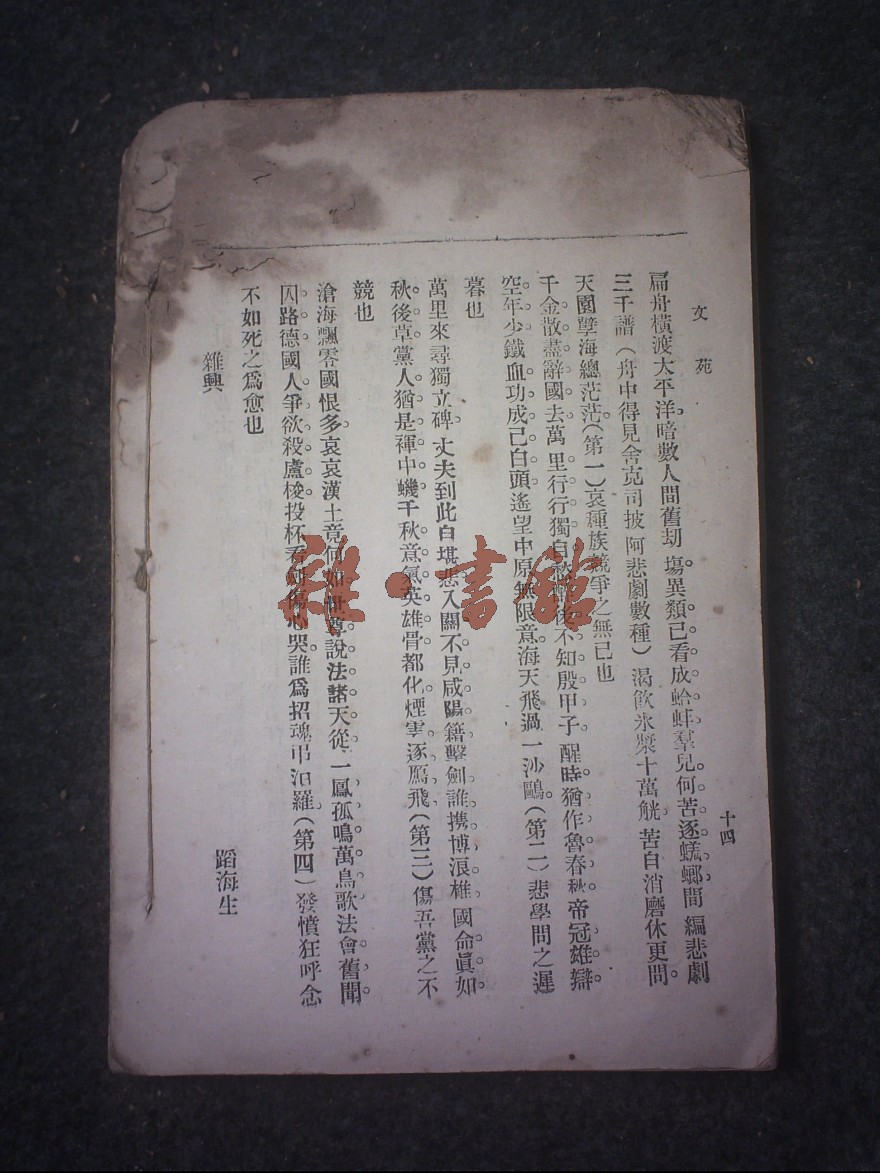 文苑
十四
扁舟橫渡大平洋。暗數人間舊刧塲異類已看成蛤蚌。羣兒何苦逐蜣螂閒編悲劇
三千譜(舟中得見舍克司披阿悲劇數種)渴飲氷漿十萬觥。苦自消磨休更問。
天圜孽海總茫茫。(第一)哀種族競爭之無已也
千金散盡辭國去萬里行行獨自後不知殷甲子。醒時猶作魯春秋。帝冠雄辯
空年少鐵血功成已白頭遙望中原無限意海天飛過一沙鷗。(第二)悲學問之遲
暮也
萬里來尋獨立碑。丈夫到此自堪悲入關不見咸陽籍擊劍誰携博浪椎。國命眞如
秋後草黨人猶是褌中蟣千秋意氣英雄骨都化煙雲逐鴈飛(第三)傷吾黨之不
競也
滄海飄零國恨多哀哀漢土竟何如世尊說法諸天從。一鳳孤鳴萬鳥歌法會舊聞
囚路德國人爭欲殺盧梭投杯看劍傷心哭。誰爲招魂弔汨羅。(第四)發憤狂呼念
不如死之爲愈也
雜興
蹈海生
雜·書館